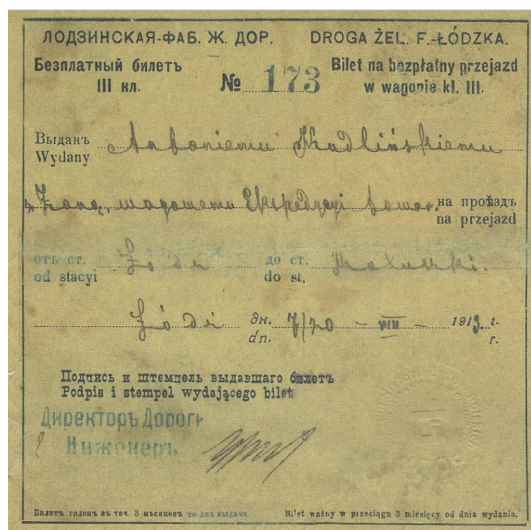 ЛОДЗИНСКАЯ-ФАБ. Ж. ДОР. DROGA ŻEL. F.-ŁÓDZKA.
Безплатный билетъ Bilet na bezpłatny przejazd
III кл. № 173 w wagonie kl. III.
Выданъ
Wydany Antoniemu Kudlińskiemu
z żoną, wagowemu Ekspedycyi towar. на проѣздъ
na przejazd
отъ ст. до ст.
od stacyi Łódź do st. Koluszki.
Łódź дн. dn. 7/20 - VIII - 1913 г. r.
Подпись и штемпель выдавшаго билетъ
Podpis i stempel wydającego bilet
Директоръ Дороги
Инженеръ
Билетъ годенъ въ теч. 3 мѣсяцевъ со дня выдачи. Bilet ważny w przeciągu 3 miesięcy od dnia wydania.